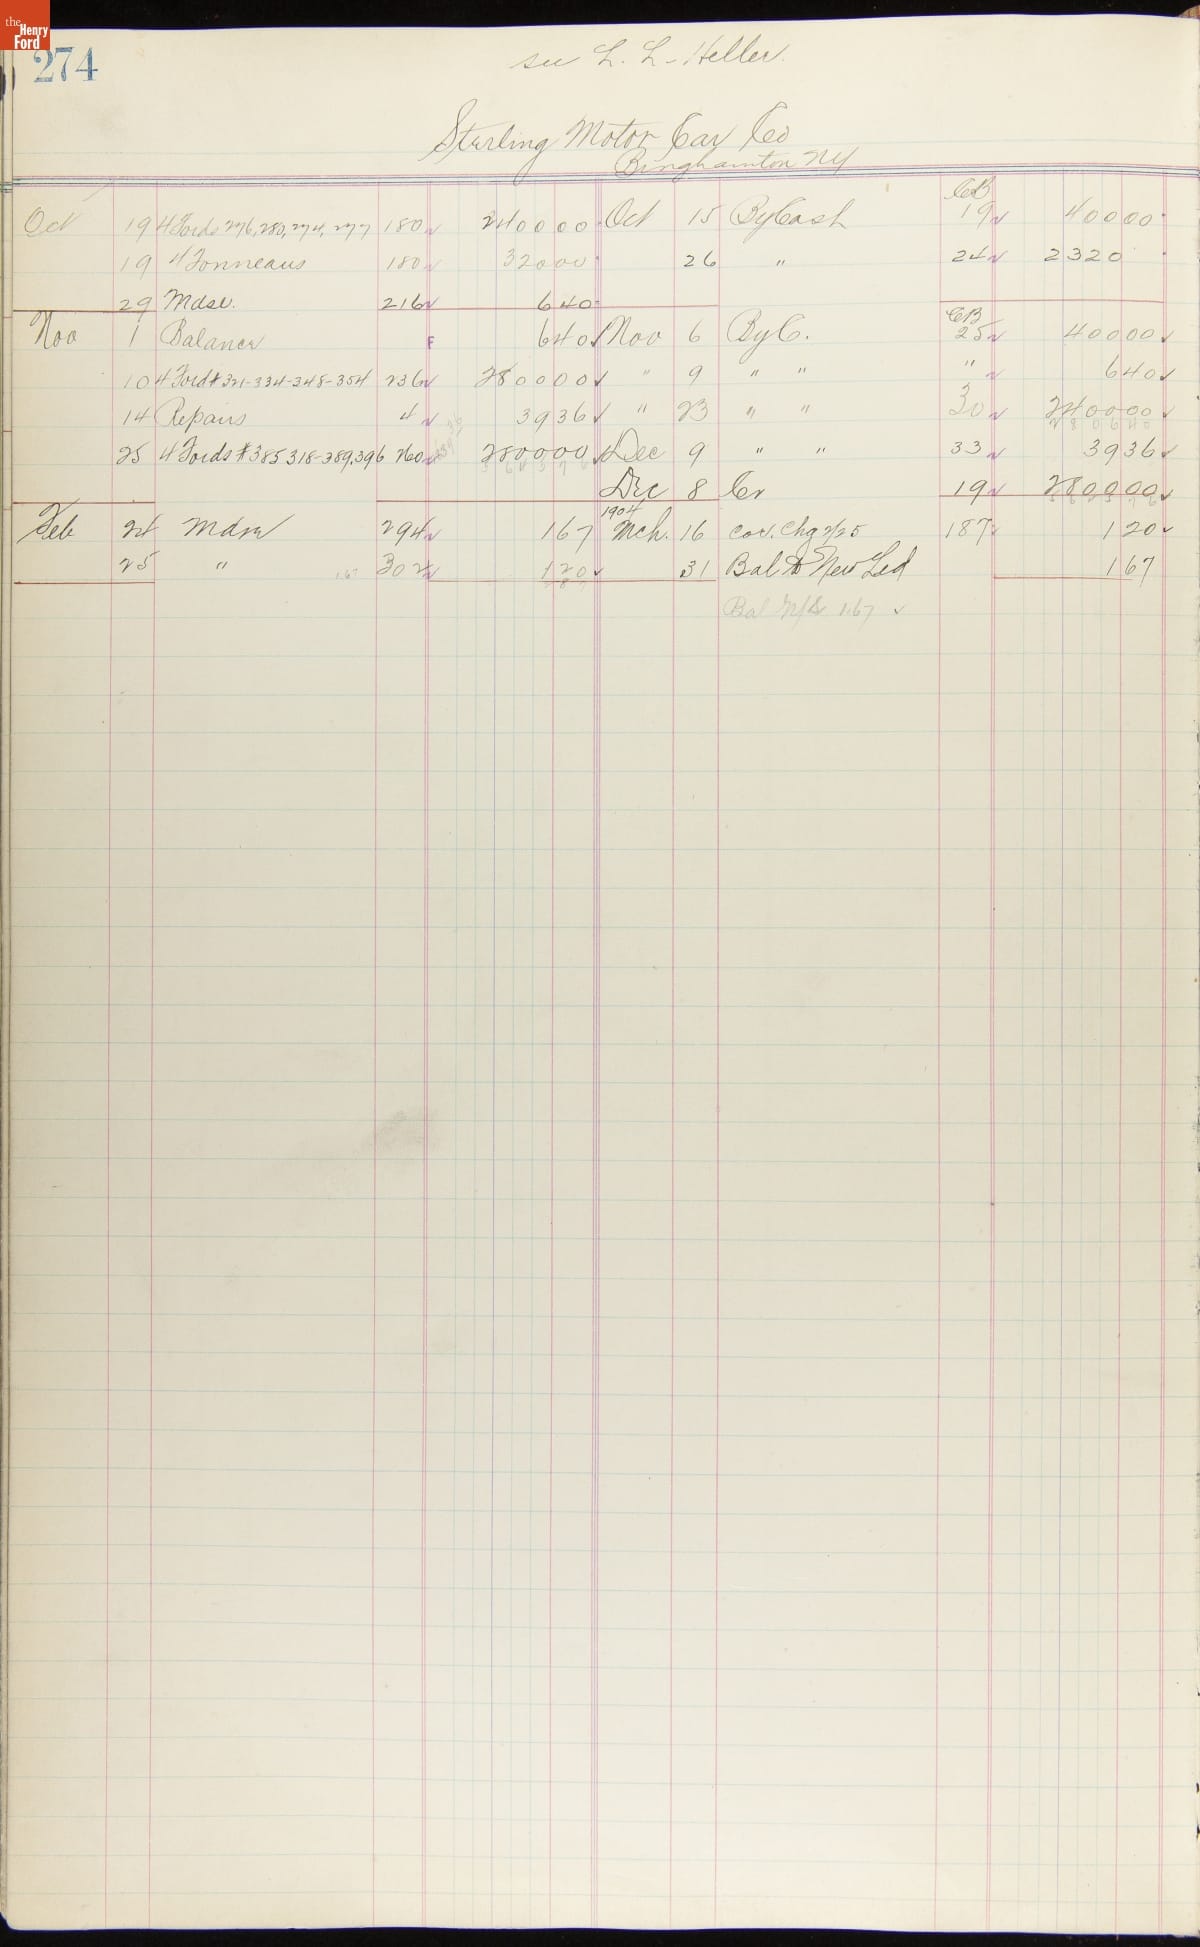 the Henry Ford
274
see L. L. Heller.
Sterling Motor Car Co
Binghamton NY
CB
Oct 19 4 Fords 276, 280, 274, 277 180 240000 Oct 15 By Cash 19 40000
19 4 Tonneaus 180 32000 26 " 24 2320
29 Mdse. 216 640
CB
Nov 1 Balance F 640 Nov 6 By C. 25 40000
10 4 Ford # 321-334-348-354 236 280000 " 9 " " " 640
14 Repairs 4 3936 " 23 " " 30 240000
280640
25 4 Fords # 385 318-389.396 260 280000 Dec 9 " " 33 3936
Dec 8 Cr 19 280000
1904
Feb 24 Mdse 294 167 Mch. 16 Cor. Chg 2/25 187 120
25 " 167 302 120 31 Bal to New Led 167
Bal N/L 1.67